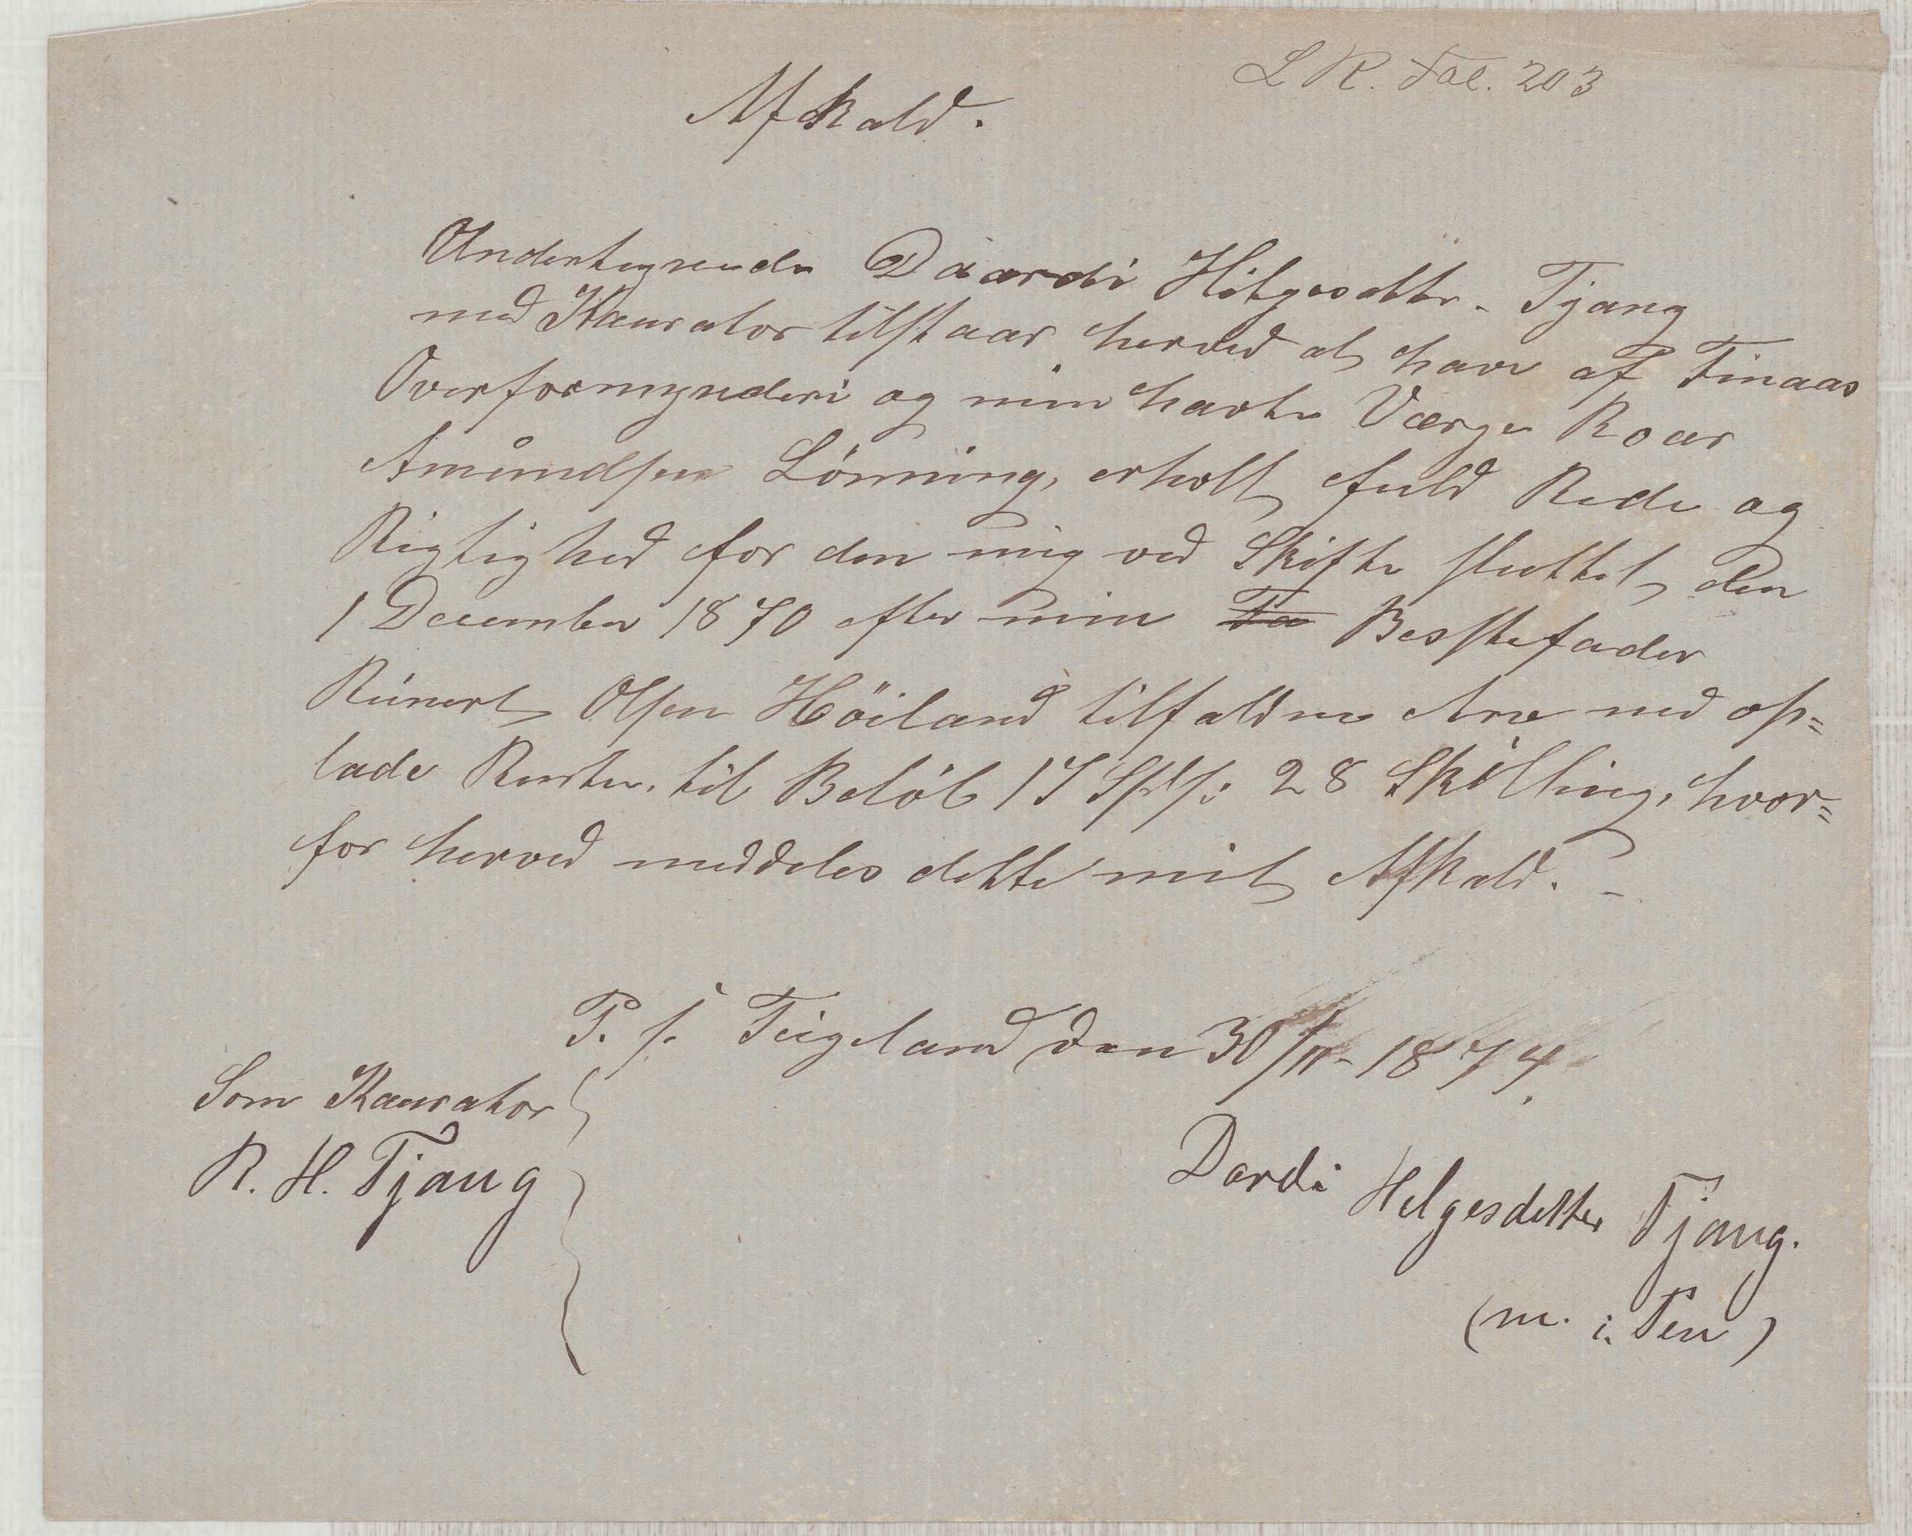 L R. Fol. 203
Afkald.
Undertegnende Daardi Helgesdtr. Tjang
med Kaurator tilstaar herved at have af Finaas
Overformynderi og min havte Værge Roar
Amundsen Lönning, erholt fuld Rede og
Rigtighed for den mig ved Skifte sluttet den
1 December 1870 efter min F̶a̶ Besstefader
Reinert Olsen Höiland tilfaldne Arv med op=
lade Renter, til Belöb 17 Spd: 28 Skilling, hvor=
for herved meddeles dette mit Afkald. –
P. t. Teigeland den 30/11 - 1874.
Som Kaurator
R. H. Tjang
Dordi Helgesdatter Tjang.
(m. i. Pen)